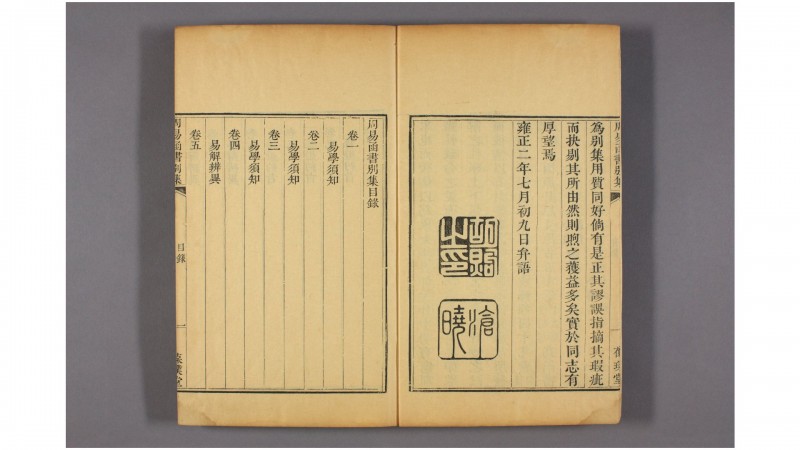 爲别集用質同好倘有是正其謬誤指摘其瑕疵
而抉剔其所由然則煦之獲益多矣實於同志有
厚望焉
雍正二年七月初九日弁語
滄
曉
周易函書别集目錄
卷一
易學須知
卷二
易學須知
卷三
易學須知
卷四
易解辨異
卷五
周易函書别集
目錄
一
葆璞堂